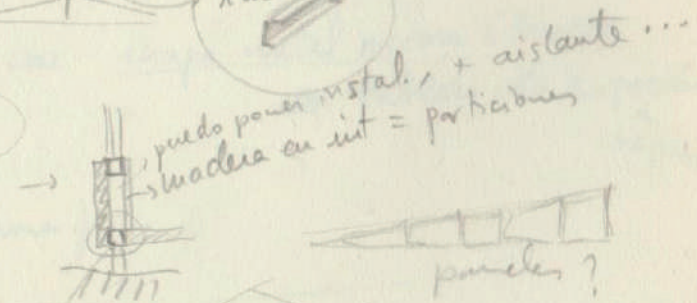 puedo poner instal., + aislante ...
madera en int = particiones
paneles ?